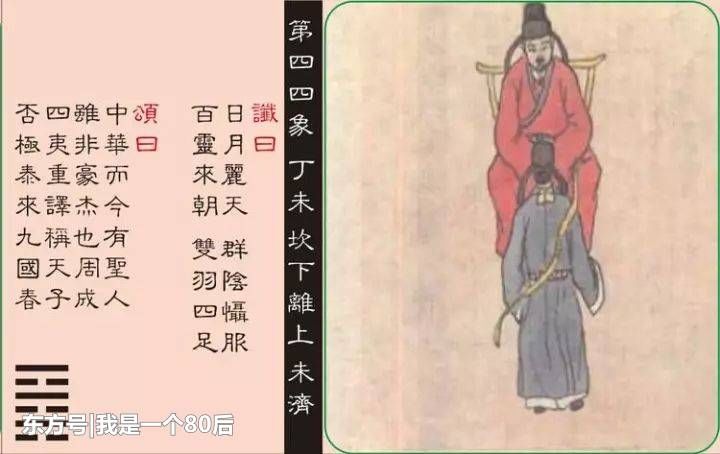 第四四象 丁未坎下離上 未濟
讖曰
日月麗天 群陰懾服
百靈來朝 雙羽四足
頌曰
中華而今有聖人
雖非豪杰也周成
四夷重譯稱天子
否極泰來九國春
东方号|我是一个80后